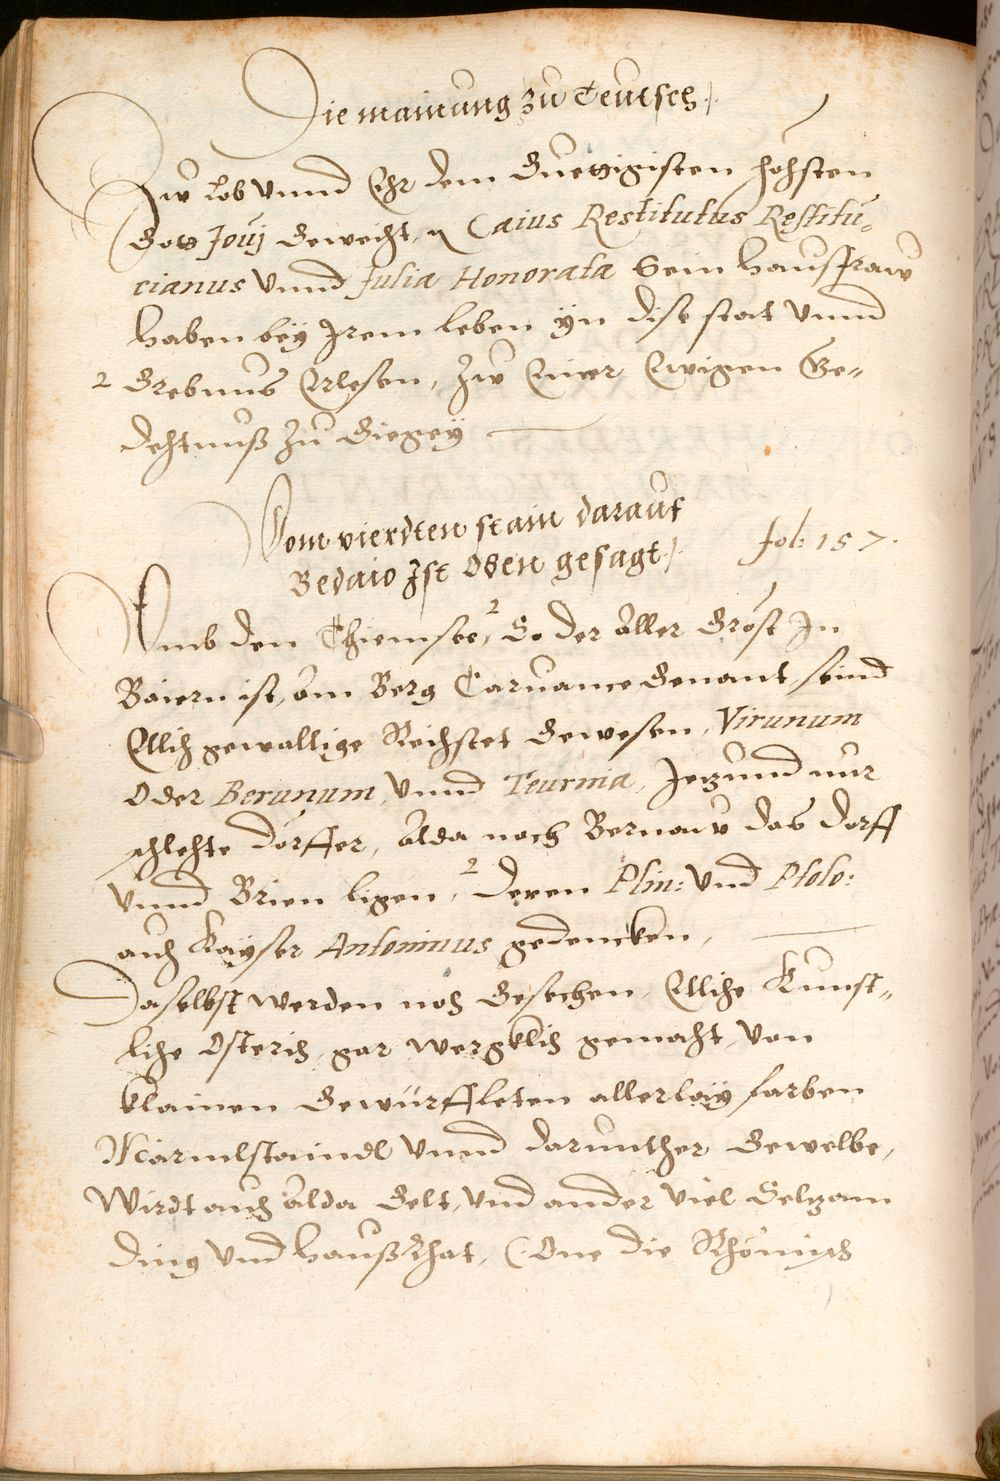 Die mainung zu Teutsch.
Zw lob vnnd Ehr dem Guettigisten hohsten
Gott Jovj Geweiht, Caius Restitutus Restitu-
cianus Vnnd Julia Honorata Sein Hausfraw
Haben bey Irem leben yn dise stat Vnnd
2 Grebnus Erlesen, Zw Einer Ewigen Ge-
dehtnuß Zu
Vom vierdten stain darauf
Bedaio Ist Oben gesagt. fol: 157.
Vmb den Chiemsee, 2 So der Aller Gröst In
Baiern ist, am Berg Caruanca Genant, seind
Etlich gewaltige Reichstet Gewesen, Virunum
Oder Berunum, Vnnd Teurnia, Jetzund nur
schlehte dörffer, Alda noch Bernaw das dorff
Vnnd Brien ligen, 2 deren Plin: Vnd Ptolo:
auch Kayser Antoninus gedencken,
Daselbst werden noch Gesechen, Etlihe Kunst-
lihe Osterich, gar wergklich gemacht, Von
klainen Gewürffleten allerlay farben
Marmlstaindl Vnnd darunther Gewelbe,
Wirdt auch Alda Gelt, Vnd ander Viel Selzam
ding Vnd Haußrhat, (One die Rhömisch